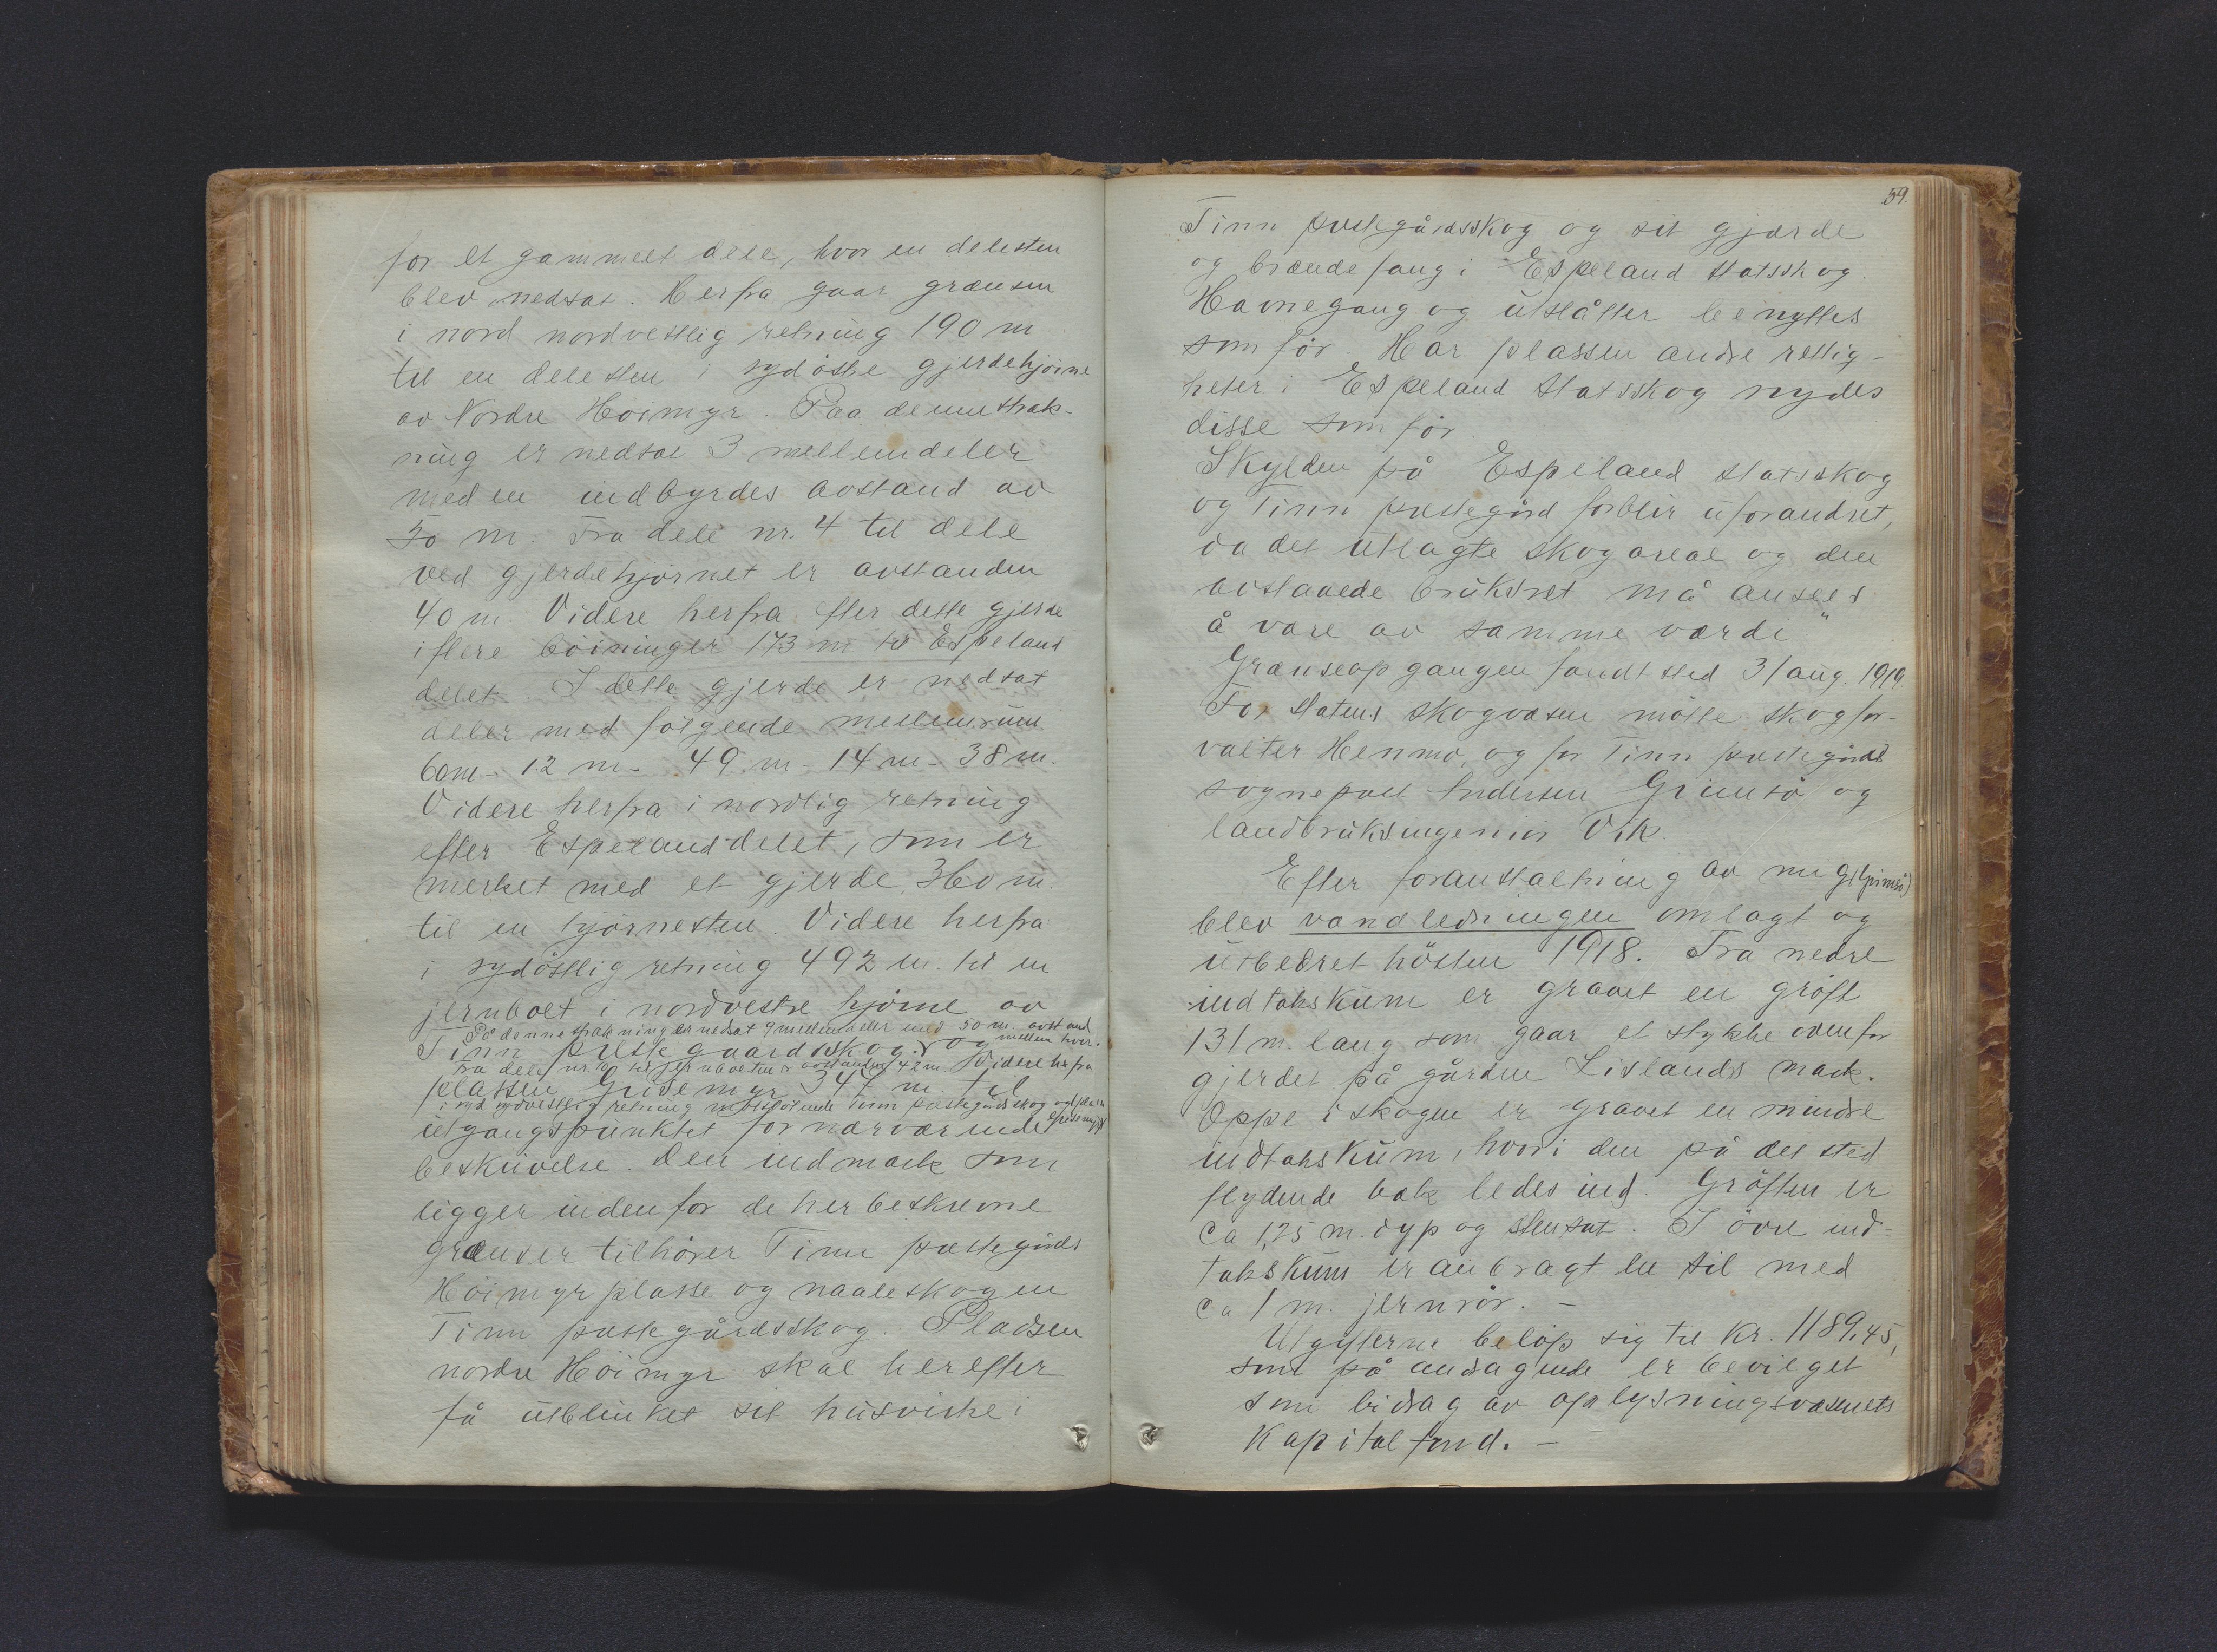 for et gammelt dele, hvor en delesten
blev nedsat. Herfra gaar grænsen
i nord nordvestlig retning 190 m
til en delesten i sydöstre gjerdehjörne
av Nordre Höimyr. Paa denne stræk-
ning er nedsat 3 mellemdeler
med en indbyrdes avstand av
50 m. Fra dele nr. 4 til dele
ved gjerdehjörnet er avstanden
40 m. Videre herfra efter dette gjerde
i flere böininger 173 m til Espeland
delet. I dette gjerde er nedsat
deler med fölgende mellemrum
60 m - 12 m - 49 m - 14 m - 38 m.
Videre herfra i nordlig retning
efter Espelanddelet, som er
merket med et gjerde, 360 m.
til en hjörnesten. Videre herfra
i sydöstlig retning 492 m. til en
jernbolt i nordvestre hjörne av
På denne strækning er nedsat 9 mellemdeler med 50 m. avstand
mellem hver.
Tinn prestegaardsskog og
Fra dele nr. til jernbolten er avstanden 42 m. Videre herfra
plassen 347 m til
i syd sydvestlig retning Tinn prestegårds skog og plassen
utgangspunktet for nærværende
beskrivelse. Den indmark som
ligger indenfor de her beskrevne
grænser tilhörer Tinn prestegårds
Höimyrplasse og naaleskogen
Tinn prestegårdsskog. Pladsen
nordre Höimyr skal herefter
få utblinket sit husvirke i
59.
Tinn prestegårdsskog og sit gjærde
og brændefang i Espeland statsskog.
Havnegang og utslåtter benyttes
som för. Har plassen andre rettig-
heter i Espeland statsskog nydes
disse som för.
Skylden på Espeland statsskog
og Tinn prestegård forblir uforandret,
da det utlagte skogareal og den
avståede bruksret må ansees
å være av samme værdi"
Grænseopgangen fandt sted 31 aug. 1919.
For statens skogvæsen mötte skogfor-
valter Henmo, og for Tinn prestegård
sogneprest Andersen Grimsö og
landbruksingeniör Vik.
Efter foranstaltning av mig (Grimsö)
blev vandledningen omlagt og
utbedret hösten 1918. Fra nedre
indtakskum er gravet en gröft
131 m. lang som gaar et stykke ovenfor
gjerdet på gården Lislands mark.
Oppe i skogen er gravet en mindre
indtakskum, hvori den på det sted
flydende bæk ledes ind. Gröften er
ca 1,25 m. dyp og stensat. I övre ind-
takskum er anbragt en sil med
ca 1 m. jernrör. -
Utgifterne belöp sig til kr. 1189,45,
som på andragende er bevilget
som bidrag av oplysningsvæsenets
Kapitalfond. -